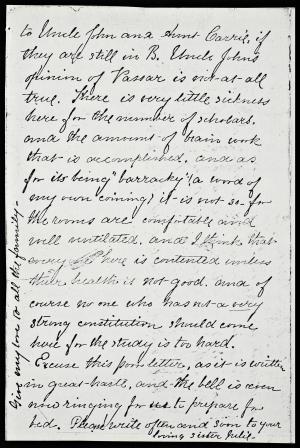 to Uncle John and Aunt Carrie, if
they are still in B. Uncle John's
opinion of Vassar is not at all
true. There is very little sickness
here for the number of scholars.
and the amount of brain work
that is accomplished. and as
for its being "barracky" (a word of
my own coining) it is not so for
the rooms are comfortable and
well ventilated, and I think that
every here is contented unless
their health is not good. and of
course no one who has not a very
strong constitution should come
here for the study is too hard.
Excuse this poor letter, as it is written
in great haste, and the bell is even
now ringing for us to prepare for
bed. Please write often and soon to your
loving sister Julia.
Give my love to all the family-